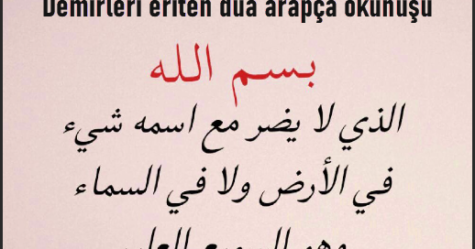 Demirleri eriten dua arapça okunuşu
بسم الله
الذي لا يضر مع اسمه شيء
في الأرض ولا في السماء
وهو السميع العليم